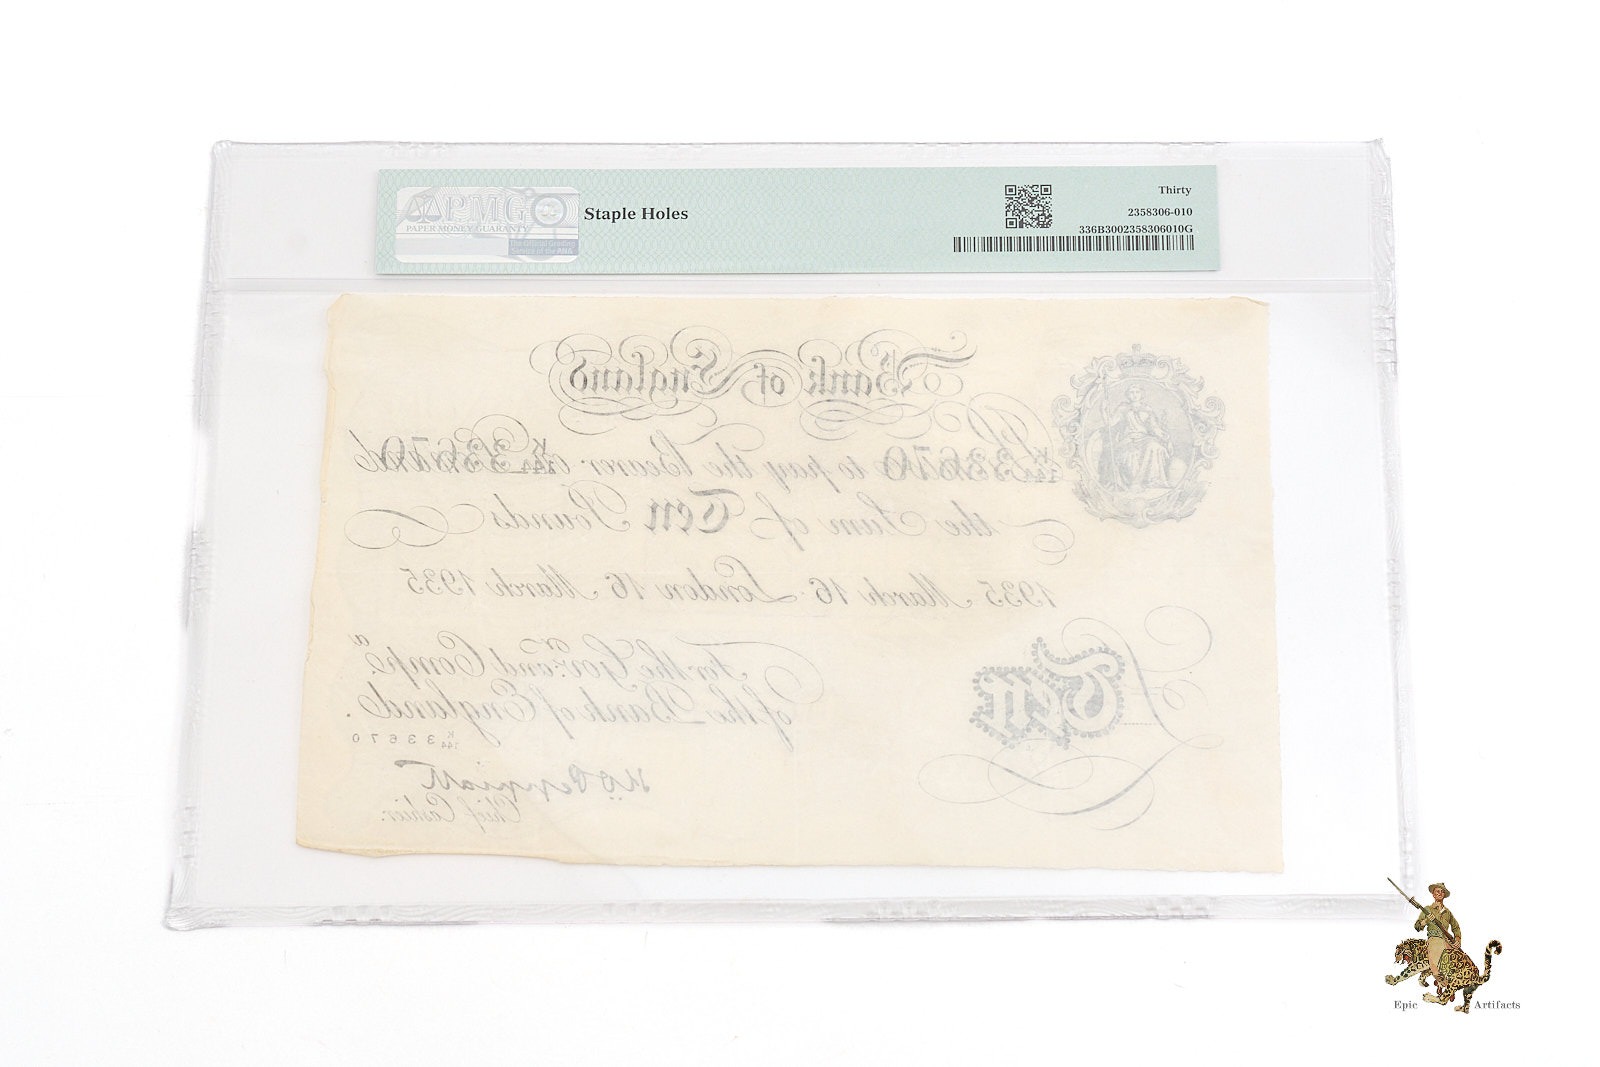 PMG
PAPER MONEY GUARANTY
The Official Grading
Service of the PNG
Staple Holes
Thirty
2358306-010
336B3002358306010G
Bank of England
K/144 33670 to pay the Bearer on K/144 33670 d
the Sum of Ten Pounds
1935 March 16 London 16 March 1935
For the Govr. and Compa.
of the Bank of England.
Ten
K/144 33670
Chief Cashier.
Epic Artifacts